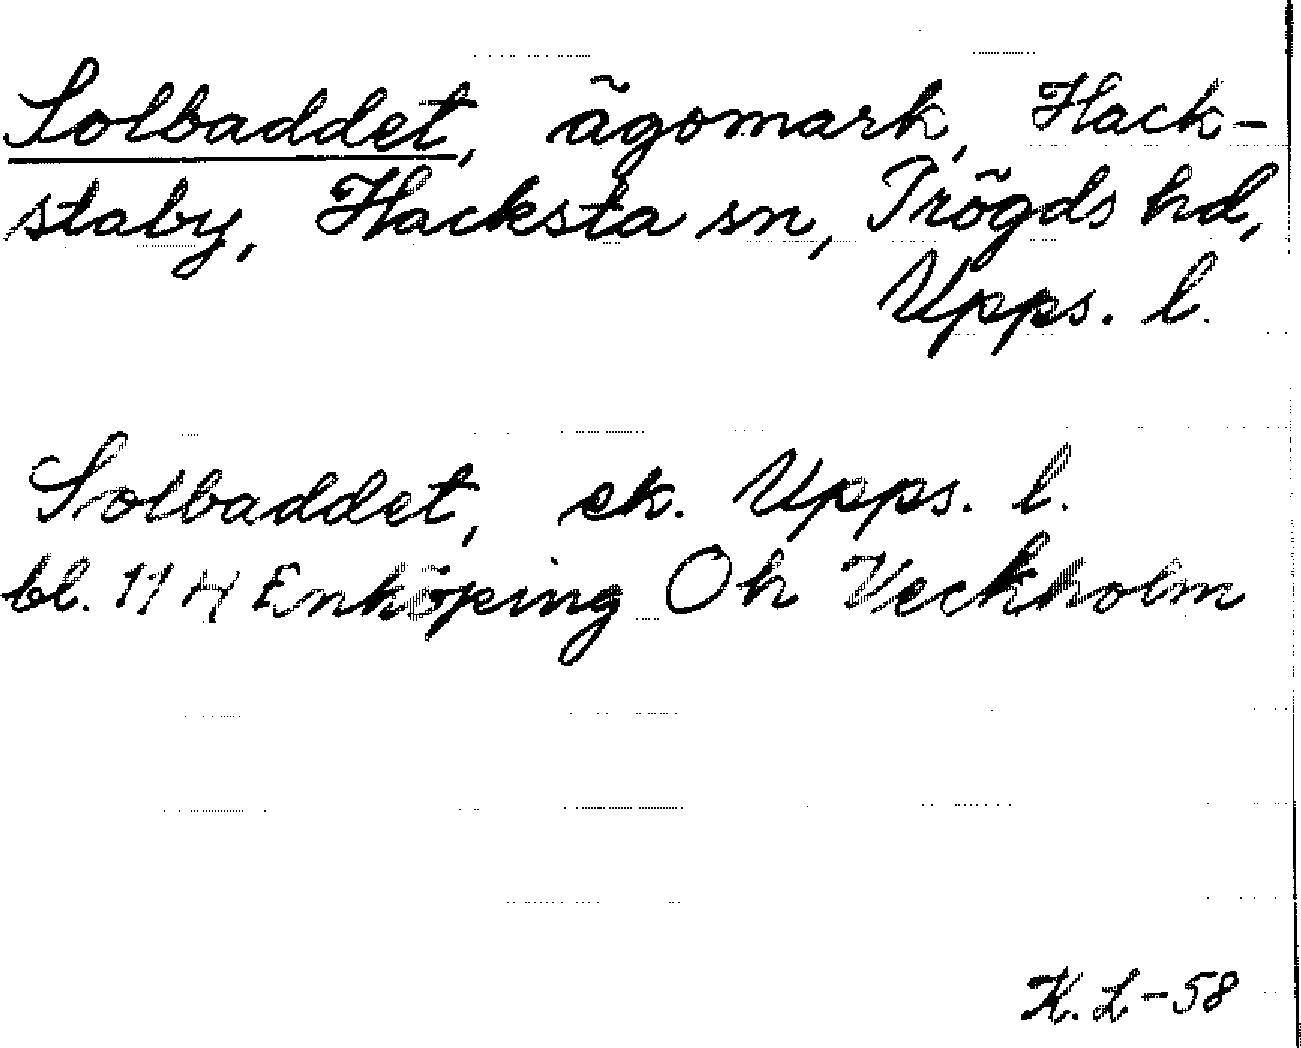 Solbaddet, ägomark, Hack-
staby, Hacksta sn, Trögds hd,
Upps. l.
Solbaddet, ek. Upps. l.
bl. 11 H Enköping Öh Veckholm
K. L-58